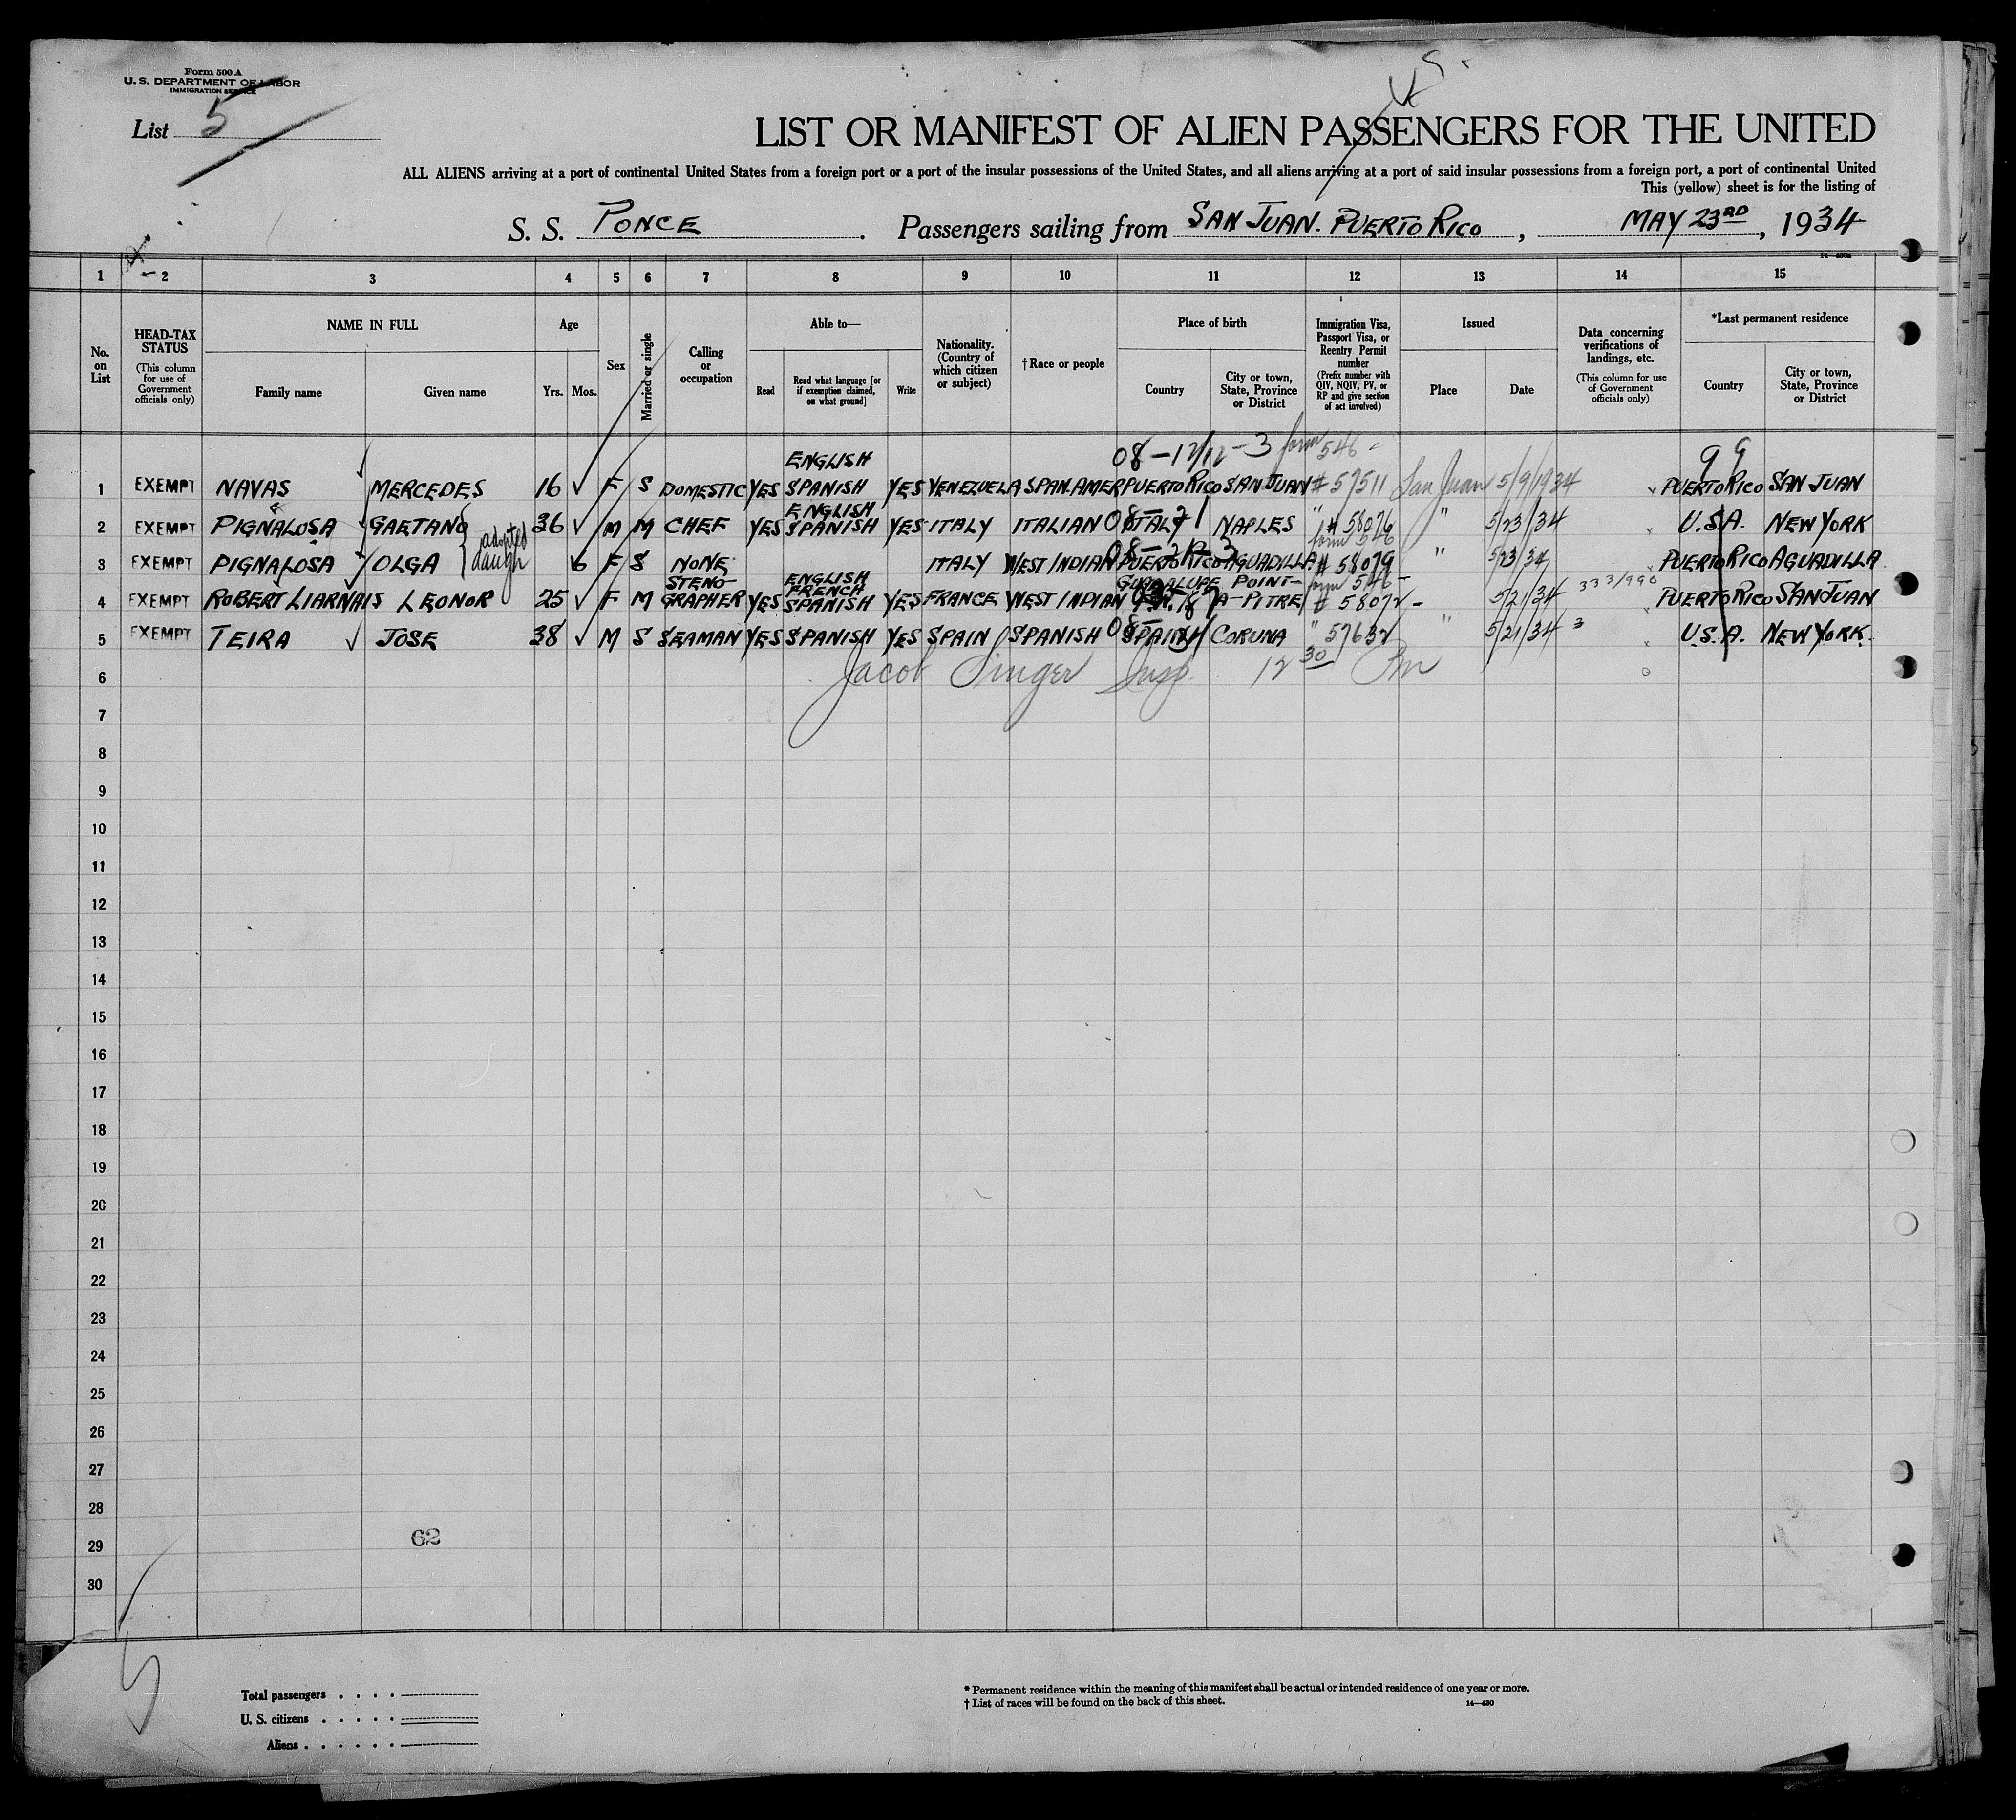 Form 500 A
U. S. DEPARTMENT OF LABOR
IMMIGRATION SERVICE
List 5
LIST OR MANIFEST OF ALIEN PASSENGERS FOR THE UNITED
ALL ALIENS arriving at a port of continental United States from a foreign port or a port of the insular possessions of the United States, and all aliens arriving at a port of said insular possessions from a foreign port, a port of continental United
This (yellow) sheet is for the listing of
S. S. PONCE. Passengers sailing from SAN JUAN. PUERTO RICO, MAY 23RD, 1934
14—430a
1 2 3 4 5 6 7 8 9 10 11 12 13 14 15
No. on List
HEAD-TAX STATUS
(This column for use of Government officials only)
NAME IN FULL
Family name Given name
Age
Yrs. Mos.
Sex
Married or single
Calling or occupation
Able to—
Read
Read what language [or if exemption claimed, on what ground]
Write
Nationality. (Country of which citizen or subject)
†Race or people
Place of birth
Country
City or town, State, Province or District
Immigration Visa, Passport Visa, or Reentry Permit number
(Prefix number with QIV, NQIV, PV, or RP and give section of act involved)
Issued
Place Date
Data concerning verifications of landings, etc.
(This column for use of Government officials only)
*Last permanent residence
Country
City or town, State, Province or District
08-12/12-3 form 546 99
ENGLISH
1 EXEMPT NAVAS MERCEDES 16 F S DOMESTIC YES SPANISH YES VENEZUELA SPAN.AMER PUERTO RICO SAN JUAN # 57511 San Juan 5/9/1934 PUERTO RICO SAN JUAN
ENGLISH
2 EXEMPT PIGNALOSA GAETANO 36 M M CHEF YES SPANISH YES ITALY ITALIAN ITALY NAPLES " # 58076 " 5/23/34 U.S.A. NEW YORK
adopted daugh
form 546
3 EXEMPT PIGNALOSA OLGA 6 F S NONE ITALY WEST INDIAN PUERTO RICO AGUADILLA # 58079 " 5/23/34 PUERTO RICO AGUADILLA
STENO- ENGLISH FRENCH GUADALUPE POINT- form 546 333/990
4 EXEMPT ROBERT LIARNAIS LEONOR 25 F M GRAPHER YES SPANISH YES FRANCE WEST INDIAN A-PITRE # 58072 - 5/21/34 PUERTO RICO SAN JUAN
5 EXEMPT TEIRA JOSE 38 M S SEAMAN YES SPANISH YES SPAIN SPANISH SPAIN CORUNA " 57632 " 5/21/34 3 U.S.A. NEW YORK.
6 Jacob Singer Insp. 12 30 Pm
7
8
9
10
11
12
13
14
15
16
17
18
19
20
21
22
23
24
25
26
27
28
62
29
30
5
Total passengers
U. S. citizens
Aliens
* Permanent residence within the meaning of this manifest shall be actual or intended residence of one year or more.
† List of races will be found on the back of this sheet. 14—430